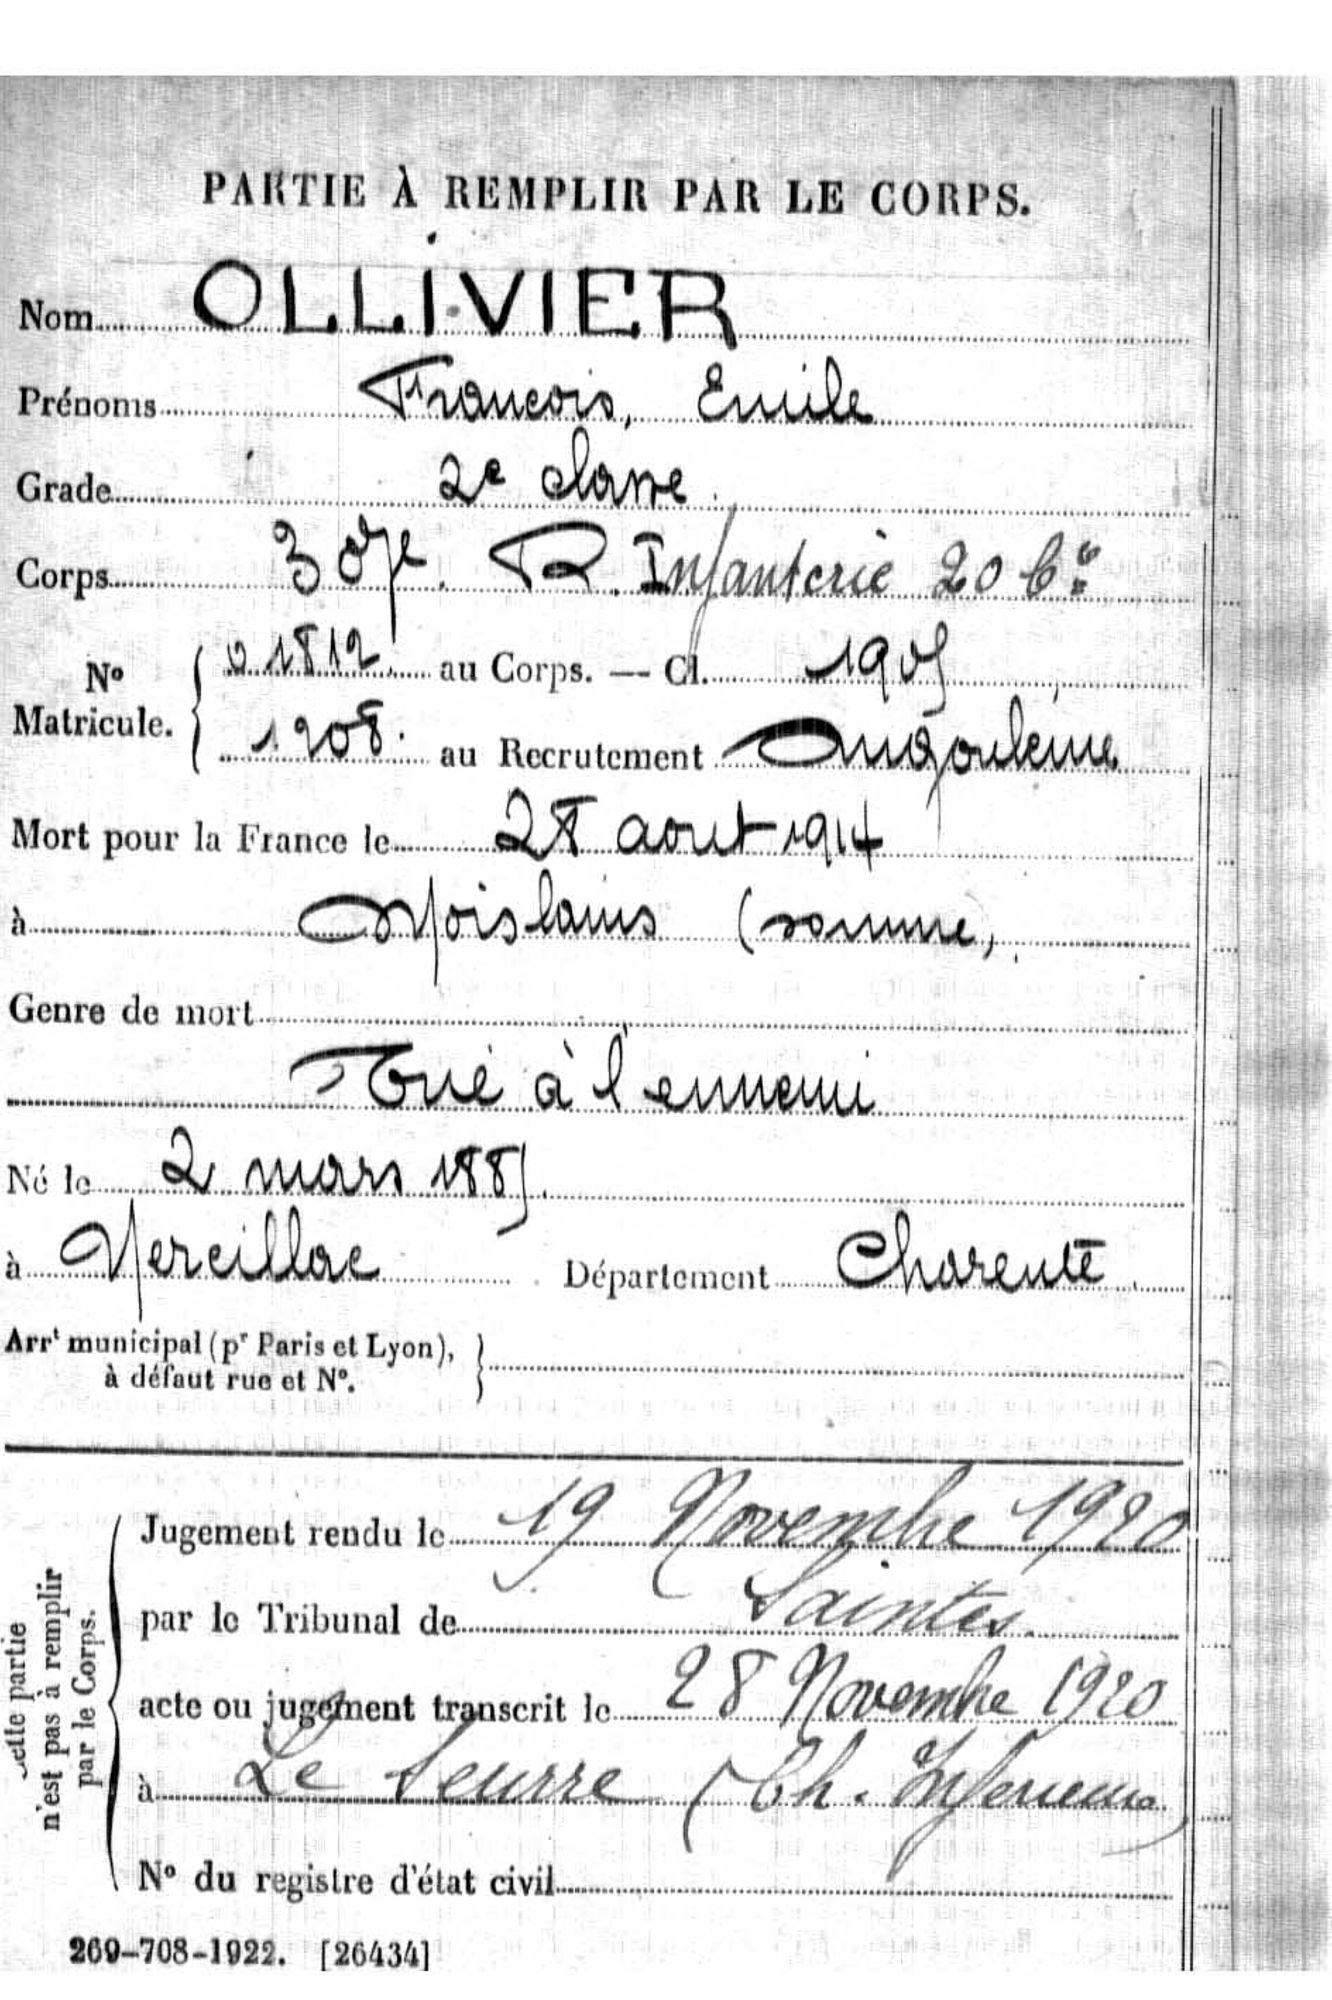 PARTIE À REMPLIR PAR LE CORPS.
Nom OLLIVIER
Prénoms François, Emile
Grade 2e classe
Corps 307e R. Infanterie 20 Cie
No Matricule. 01812. au Corps. — Cl. 1905
1208. au Recrutement Angoulême
Mort pour la France le 28 aout 1914
à Moislains (Somme)
Genre de mort
Tué à l'ennemi
Né le 2 mars 1885
à Mercillac Département Charente
Arrt municipal (pr Paris et Lyon),
à défaut rue et No.
Cette partie
n'est pas à remplir
par le Corps.
Jugement rendu le 19 Novembre 1920
par le Tribunal de Saintes.
acte ou jugement transcrit le 28 Novembre 1920
à Le Seurre (Ch. Inférieure)
No du registre d'état civil
269-708-1922. [26434]